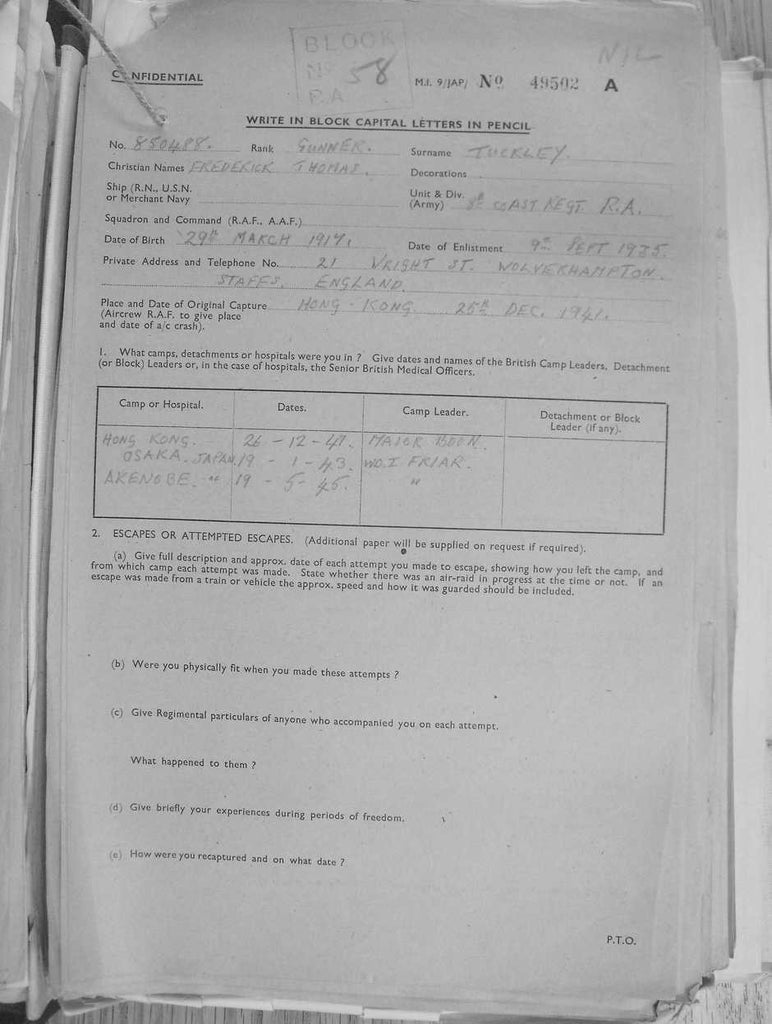 BLOCK
No 58
R.A
NIL
CONFIDENTIAL
M.I. 9/JAP/ No 49502 A
WRITE IN BLOCK CAPITAL LETTERS IN PENCIL
No. 850488. Rank GUNNER. Surname TUCKLEY.
Christian Names FREDERICK THOMAS. Decorations
Ship (R.N., U.S.N.
or Merchant Navy
Unit & Div.
(Army) 8th COAST REGT. R.A.
Squadron and Command (R.A.F., A.A.F.)
Date of Birth 29th MARCH 1917. Date of Enlistment 9th SEPT 1935.
Private Address and Telephone No. 21 WRIGHT ST. WOLVERHAMPTON.
STAFFS. ENGLAND.
Place and Date of Original Capture HONG-KONG. 25th DEC. 1941.
(Aircrew R.A.F. to give place
and date of a/c crash).
1. What camps, detachments or hospitals were you in ? Give dates and names of the British Camp Leaders, Detachment
(or Block) Leaders or, in the case of hospitals, the Senior British Medical Officers.
Camp or Hospital. Dates. Camp Leader. Detachment or Block
Leader (if any).
HONG KONG. 26-12-41. MAJOR BOON.
OSAKA. JAPAN 19-1-43. WO.I FRIAR.
AKENOBE. " 19-5-45. "
2. ESCAPES OR ATTEMPTED ESCAPES. (Additional paper will be supplied on request if required).
(a) Give full description and approx. date of each attempt you made to escape, showing how you left the camp, and
from which camp each attempt was made. State whether there was an air-raid in progress at the time or not. If an
escape was made from a train or vehicle the approx. speed and how it was guarded should be included.
(b) Were you physically fit when you made these attempts ?
(c) Give Regimental particulars of anyone who accompanied you on each attempt.
What happened to them ?
(d) Give briefly your experiences during periods of freedom.
(e) How were you recaptured and on what date ?
P.T.O.